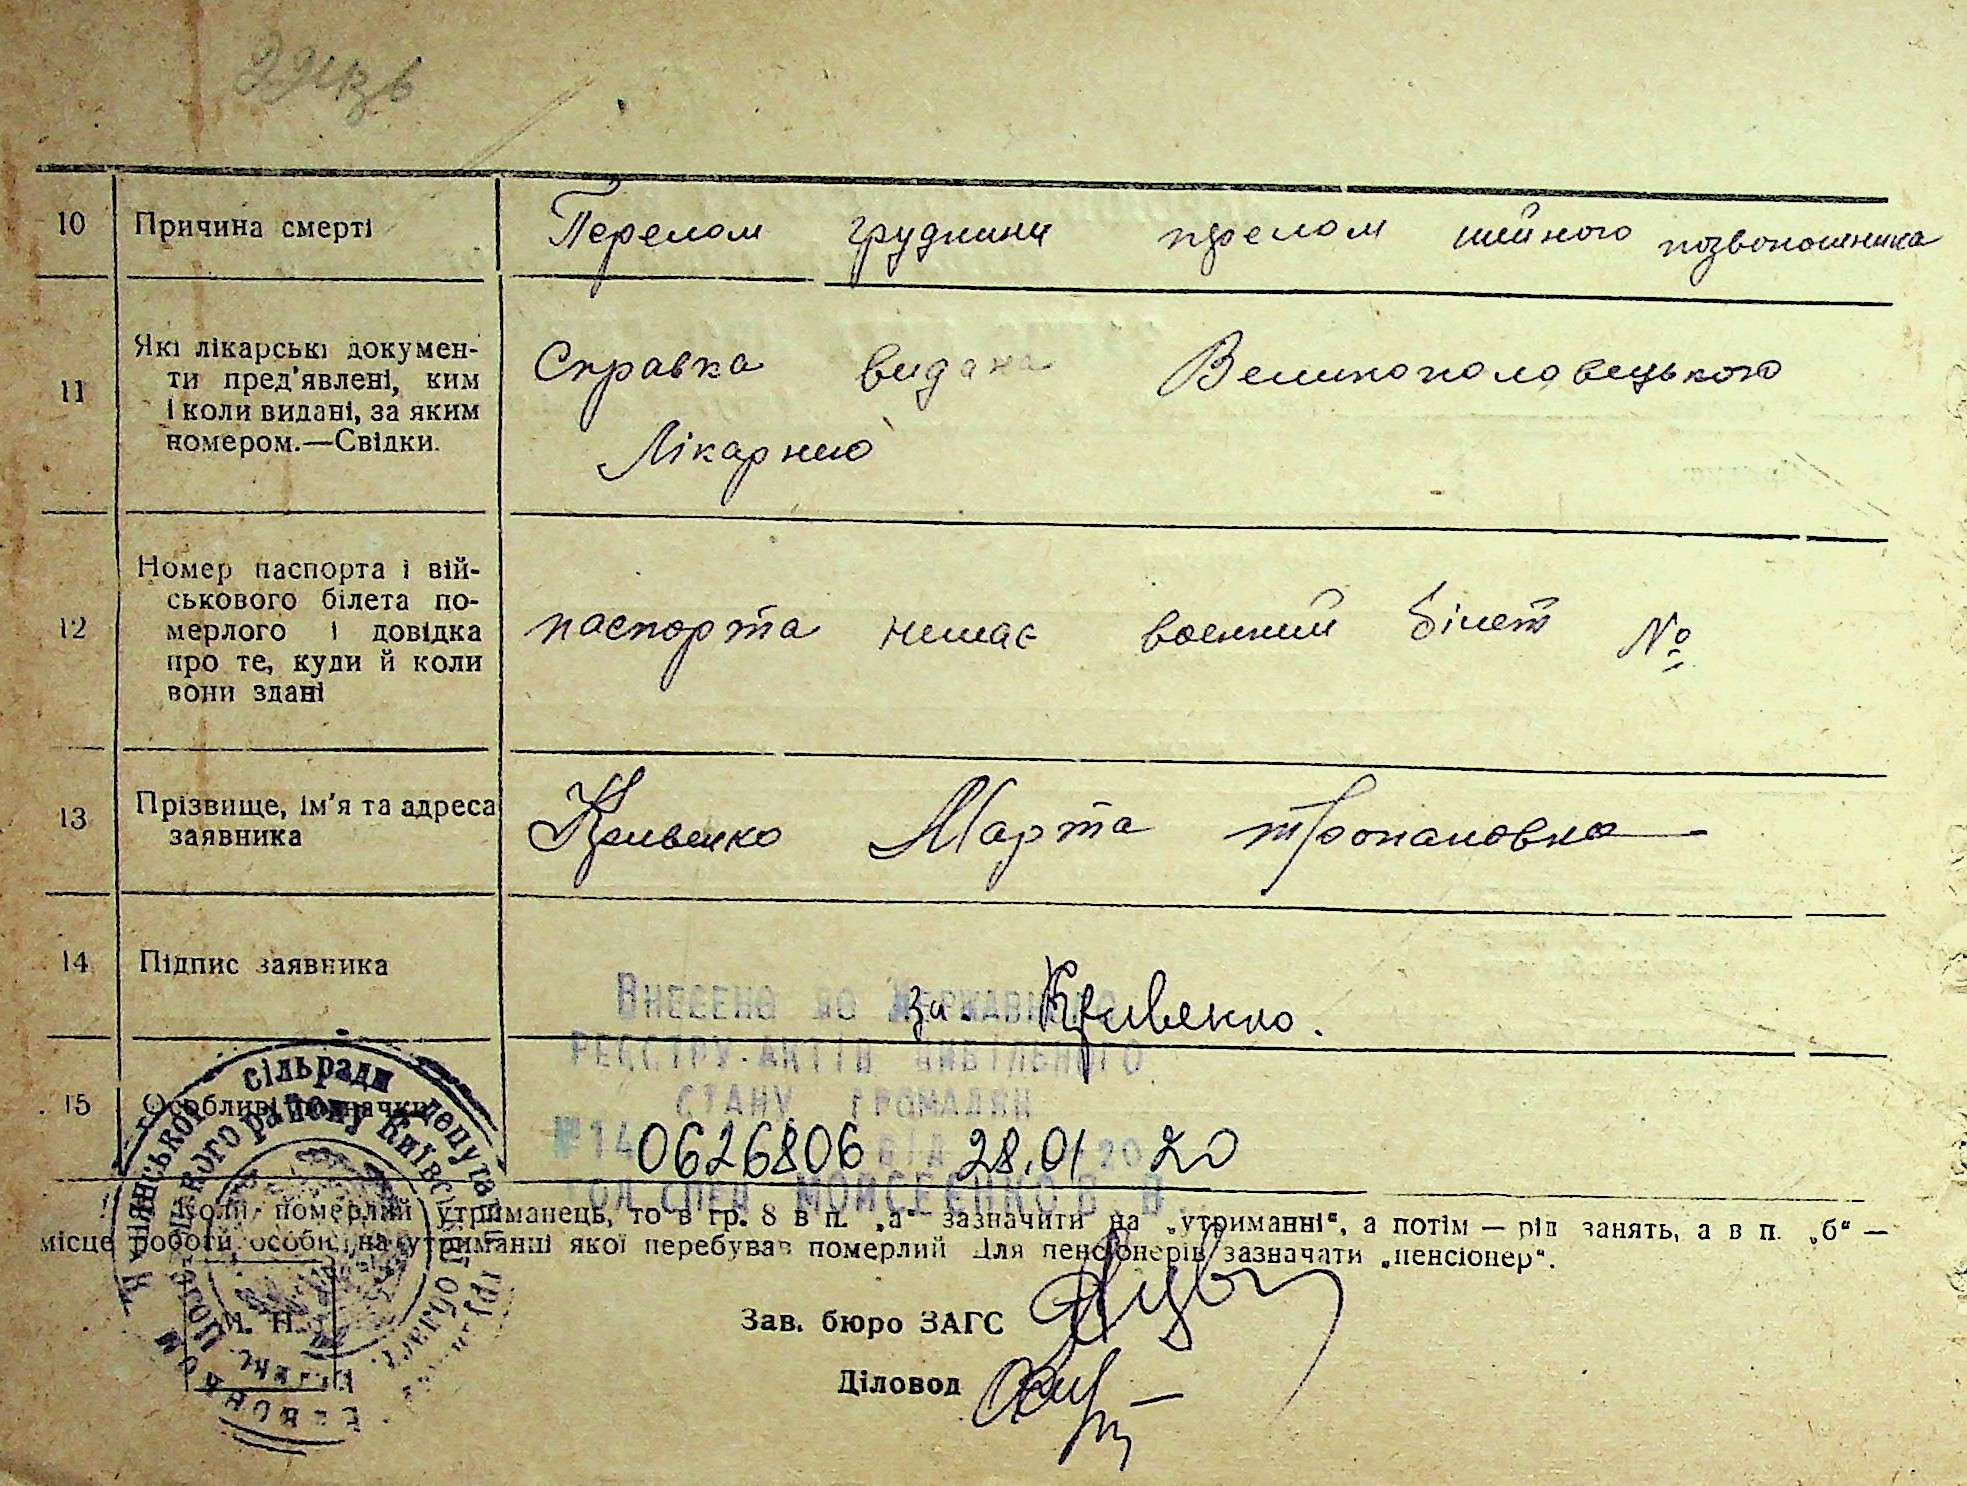 10
Причина смерті
Перелом грудини перелом шийного позвоношника
11
Які лікарські докумен-
ти пред'явлені, ким
і коли видані, за яким
номером.—Свідки.
Справка видана Великополовецькою
Лікарнею
12
Номер паспорта і вій-
ськового білета по-
мерлого і довідка
про те, куди й коли
вони здані
паспорта немає военний білет №
13
Прізвище, ім'я та адреса
заявника
Кривенко Марта
14
Підпис заявника
за. Кривенко.
Внесено до Державного
реєстру актів цивільного
стану громадян
15
Особливі позначки
№ 14 0626806 від 28.01 2020
гол. спец Моисеєнко В. В.
Коли померлий утриманець, то в гр. 8 в п. „а“ зазначити на „утриманні“, а потім — рід занять, а в п. „б“ —
місце роботи особи, на утриманні якої перебував померлий Для пенсіонерів зазначати „пенсіонер“.
Зав. бюро ЗАГС
М. П.
Діловод
сільради депутатів
району Київської області